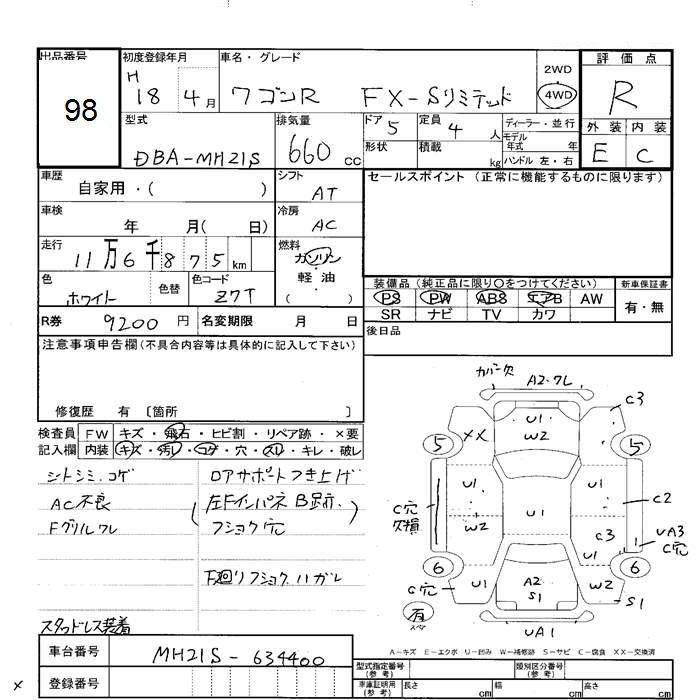 出品番号 98
初度登録年月 H 18 4月
車名・グレード ワゴンR FX-Sリミテッド
2WD
4WD
評価点 R
外装 内装
E C
型式 DBA-MH21S
排気量 660 cc
ドア 5
形状
定員 4 人
積載 kg
ディーラー・並行
モデル年式 年
ハンドル 左・右
車歴 自家用・( )
シフト AT
セールスポイント (正常に機能するものに限ります)
車検 年 月( 日)
冷房 AC
走行 11万6千875km
燃料 ガソリン
軽・油
( )
色 ホワイト
色替
色コード Z7T
装備品 (純正品に限り〇をつけてください)
PS PW ABS エアB AW
SR ナビ TV カワ
新車保証書
有・無
R券 9200円
名変期限 月 日
後日品
注意事項申告欄(不具合内容等は具体的に記入して下さい)
修復歴 有 〔箇所 〕
検査員 FW キズ・飛石・ヒビ割・リペア跡・×要
記入欄 内装 キズ・汚レ・コゲ・穴・スレ・キレ・破レ
シトシミ.コゲ
AC不良
Fグリルワレ
スタッドレス装着
ロアサポートつき上げ
(左Fインパネ B跡.)
フショク穴
下廻りフショクハガレ
カバー欠
A2.ワレ
C3
U1
W2
XX
5
5
U1
U1
C2
C穴
欠損
U1
W2
C3
U1
UA3
C穴
6
6
C穴
U1
A2
S1
W2
S1
有
スペア
UA1
A-キズ E-エクボ U-凹み W-補修跡 S-サビ C-腐食 XX-交換済
車台番号 MH21S-634400
登録番号
型式指定番号
(参考)
類別区分番号
(参考)
車庫証明用
(参考)
長さ cm 幅 cm 高さ cm
×